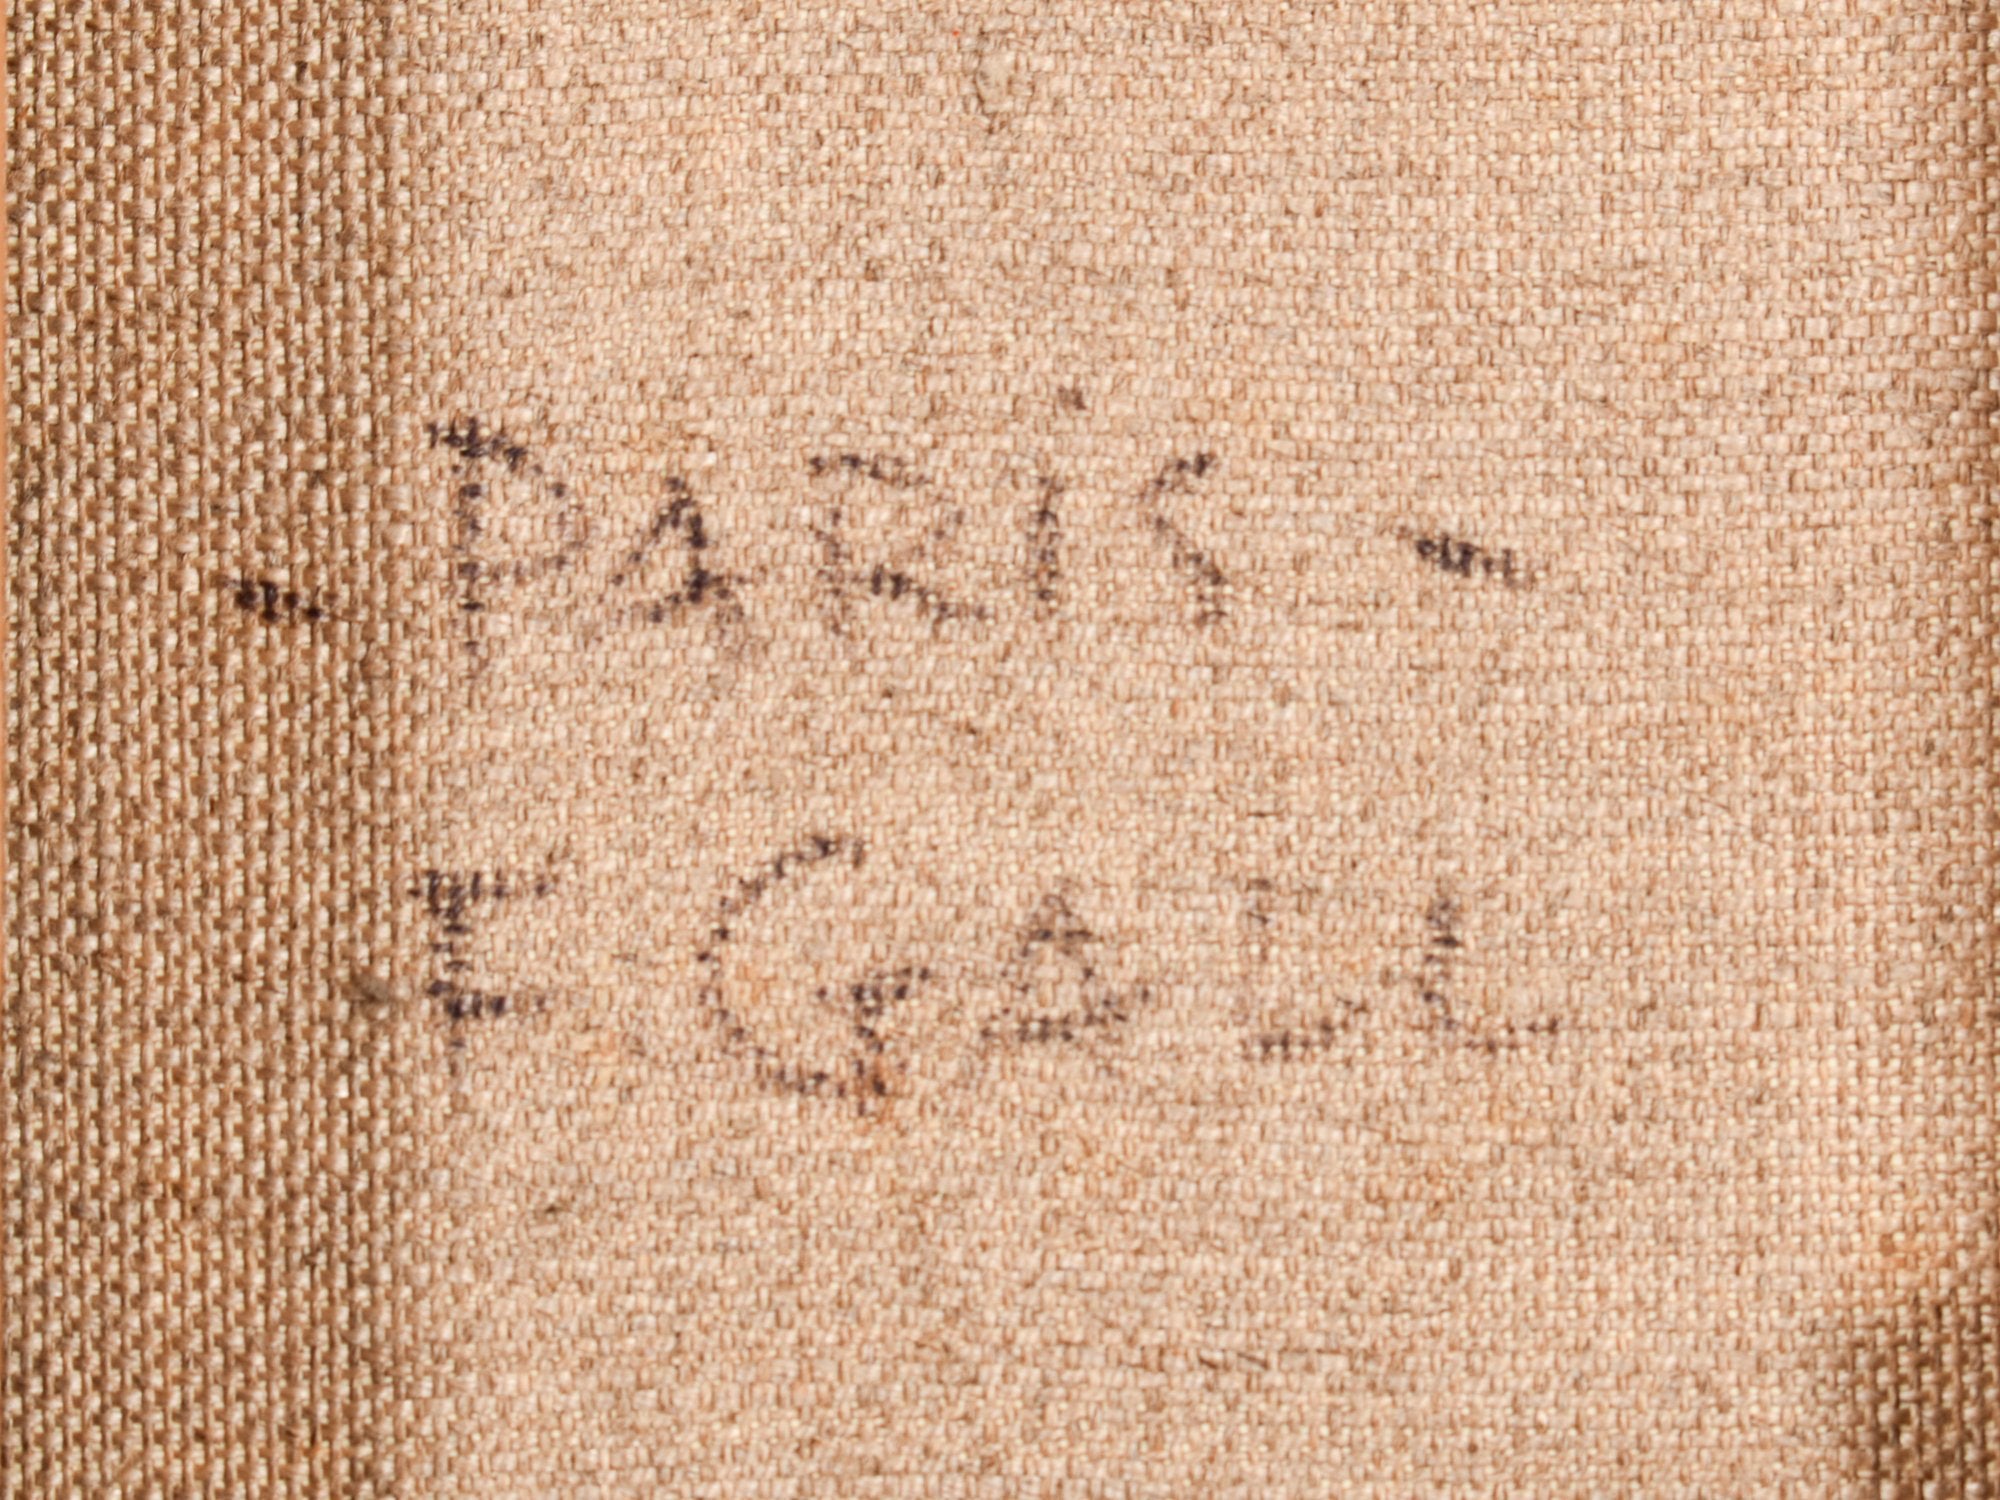 - PARiS -
F. GALL